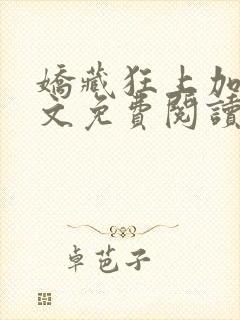 嬌藏狂上加
文免費閱讀
卓芭子